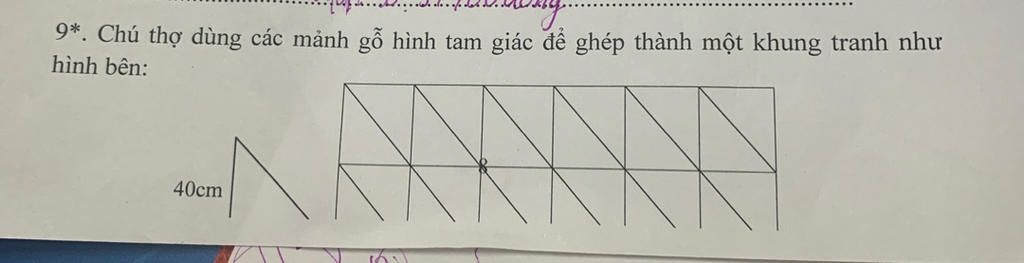 9*. Chú thợ dùng các mảnh gỗ hình tam giác để ghép thành một khung tranh như
hình bên:
8
40cm